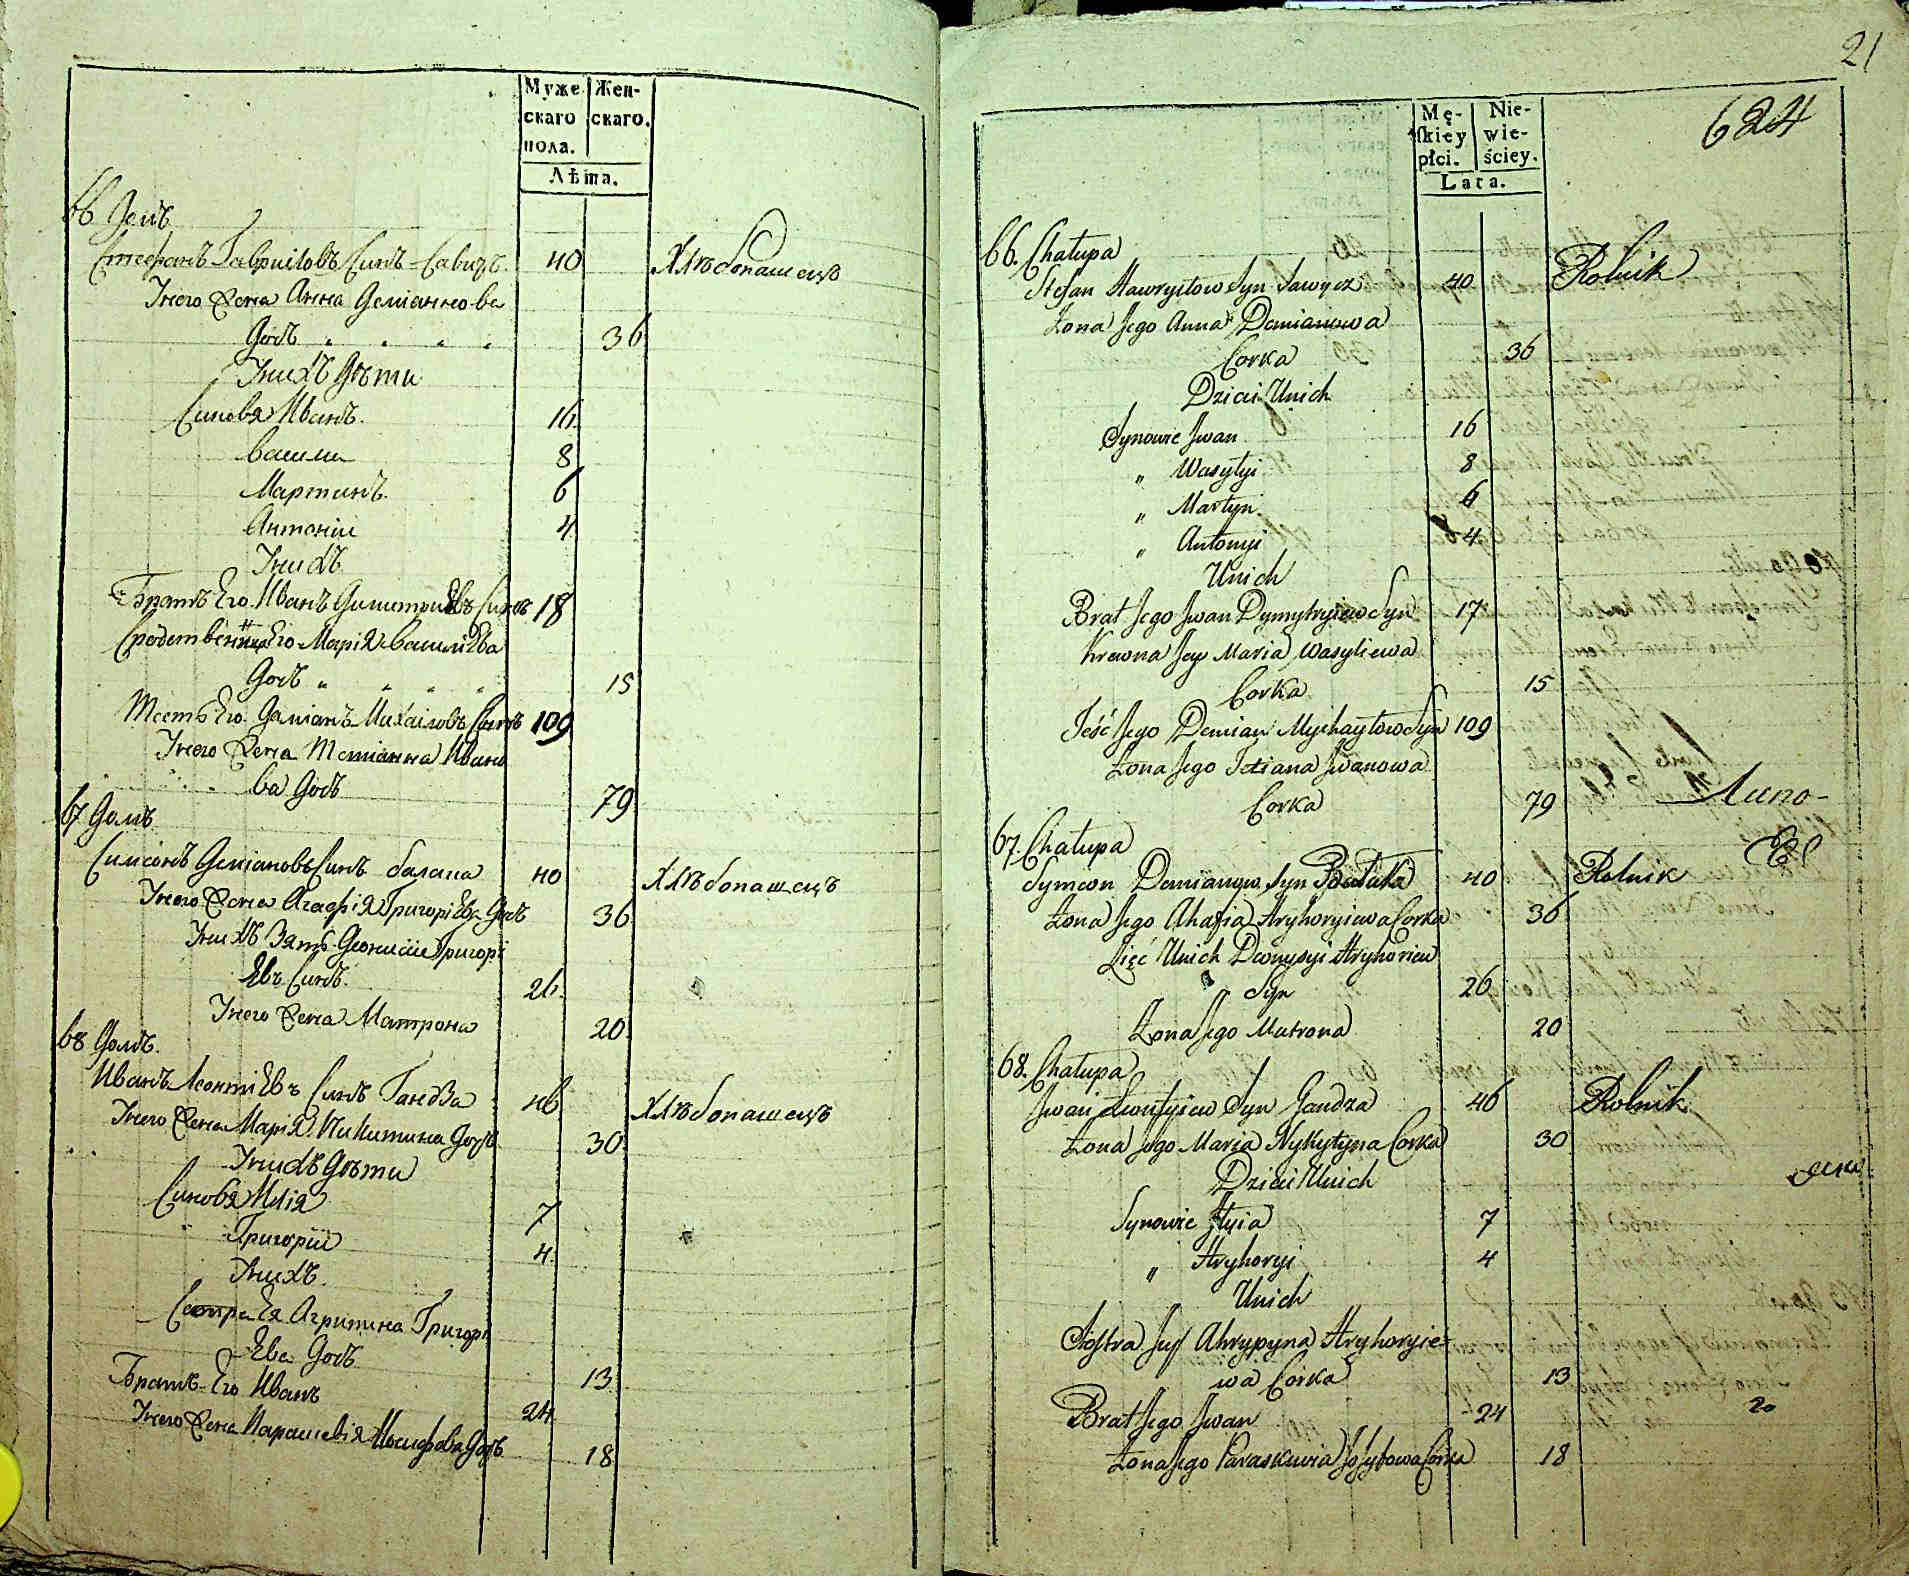 Муже
скаго
пола.
Жен-
скаго.
Лѣта.
66 Домъ
Стефанъ Гавриловъ Синъ Савичъ 40 Хлѣбопашецъ
Унего Жена Анна Деміано-ва
Дочъ " " " " 36
Унихъ Дѣти
Синовя Иванъ. 16.
Василии 8
Мартинъ. 6
Антоніи 4
Унихъ
Братъ Его Иванъ Димитриевъ Синъ 18
Сродственица Его Марія Василіева
Дочъ " " " " 15
Тесть Его Даміанъ Михаіловъ Синъ 109
Унего Жена Тетіанна Ивано
ва Дочъ 79
67 Домъ
Симеонъ Деміановъ Синъ 40 Хлѣбопашецъ
Унего Жена Агафія Григоріева Дочъ 36
Унихъ Зять Деонисіи Григорі
Евъ Синъ. 26.
Унего Жена Матрона 20
68 Домъ.
Иванъ Леонтіевъ Синъ Гандза 46 Хлѣбопашецъ
Унего Жена Марія Никитина Дочъ 30
Унихъ Дѣти
Синовя Илія 7
Григоріи 4
Унихъ.
Сестра Ея Агрипина Григорі
Ева Дочъ 13
Братъ Его Иванъ 24
Унего Жена Парасквія Иосифова Дочъ 18
21
624
Mę-
skiey
płci.
Nie-
wie-
ściey.
Lata.
66. Chałupa
Stefan Hawryłow Syn Sawycz 40 Rolnik
Żona Jego Anna Demianowa
Corka 36
Dzieci Unich
Synowie Jwan 16
" Wasylyi 8
" Martyn. 6
" Antonyi 4
Unich
Brat Jego Jwan Dymytryiew Syn 17
Krewna Jey Maria Wasyliewa
Corka 15
Teść Jego Demian Mychayłow Syn 109
Żona Jego Tetiana Jwanowa
Corka 79
Липо-
67. Chałupa
Symeon Demianow Syn 40 Rolnik
Żona Jego Ahafia Hryhoryiewa Corka 36
Zięć Unich Deonysyi Hryhoriew
Syn 26
Żona Jego Matrona 20
68. Chałupa
Jwan Leontyiew Syn Gandza 46 Rolnik
Żona Jego Maria Nykytyna Corka 30
Dzieci Unich
Synowie Jlyia 7
" Hryhoryi 4
Unich
Siostra Jey Ahrypyna Hryhoryie-
wa Corka 13
Brat Jego Jwan 24
Żona Jego Paraskewia Jozyfowa Corka 18